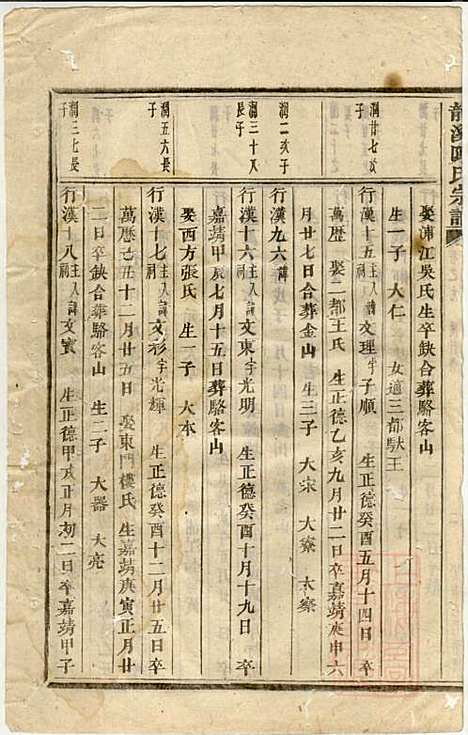 龍溪 氏宗譜
娶浦江吳氏生卒缺合葬駱客山
生一子 大仁 女適三都馱王
潤廿七次子
行漢十五主入祠諱文理字子順 生正德癸酉五月十四日卒
萬歷 娶二都王氏 生正德乙亥九月廿二日卒嘉靖庚申六
月廿七日合葬金山 生三子 大宋 大寮 大察
潤二次子
行漢九六諱
潤三十八長子
行漢十六主入祠諱文東字光明 生正德癸酉十月十九日 卒
嘉靖甲辰七月十五日葬駱客山
娶西方張氏 生一子 大本
潤五六長子
行漢十七主入祠諱文彩字光輝 生正德癸酉十二月廿五日卒
萬歷己丑十二月廿五日 娶東門樓氏 生嘉靖庚寅正月廿
二日卒缺合葬駱客山 生二子 大器 大亮
潤三七長子
行漢十八主入祠諱文實 生正德甲亥正月初二日卒嘉靖甲子